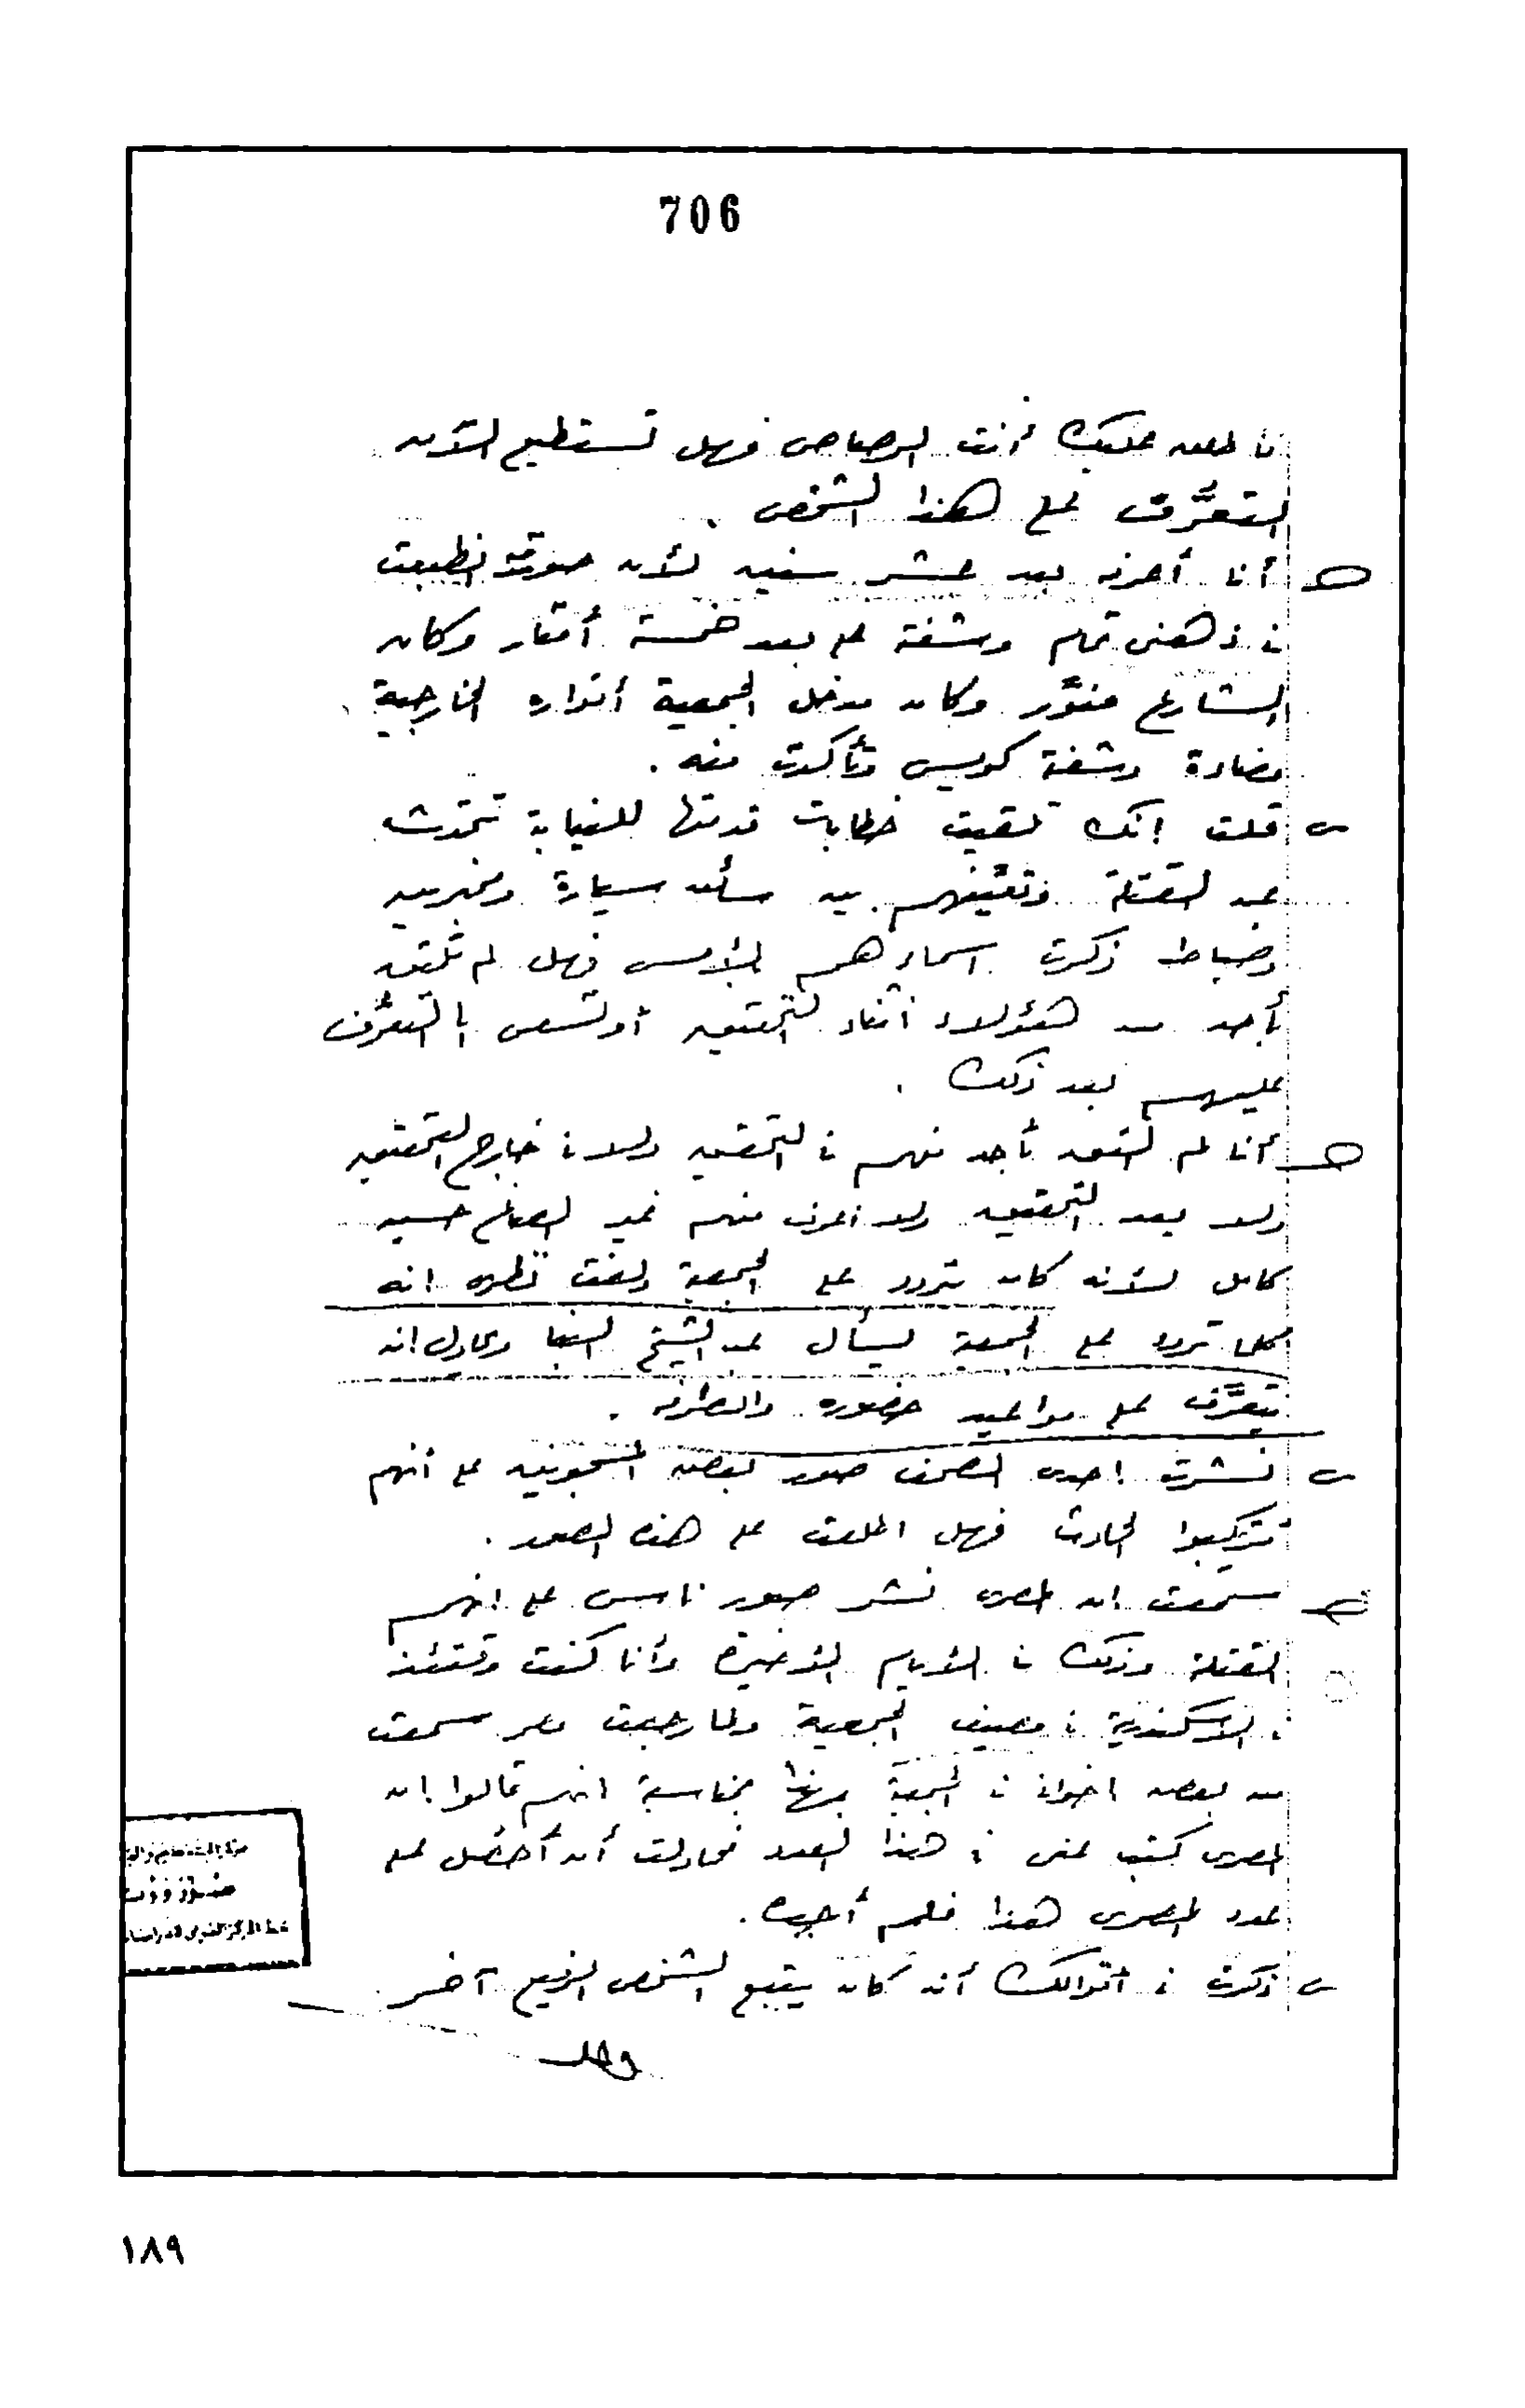 706
فأطلق عليك أنت الرصاص فهل تستطيع الآن
التعرُّف على هذا الشخص .
حـ أنا أعرفه بعد عشر سنين لأن صورته انطبعت
في ذهني تمام وشفته على بعد خمسة أمتار وكان
الشارع منوَّر وكان مدخل الجمعية أنواره الخارجية
مضاءة وشفته كويس وتأكدت منه .
س قلت إنك تلقيت خطابات قدمتها للنيابة تحدثت
عن القتلة وتعيّنهم بين سائق سيارة ومخبرين
وضباط ذكرت اسماءهم بالأمس فهل لم تلتق
بأحد من هؤلاء أثناء التحقيق أو تسعى بالتعرُّف
عليهم بعد ذلك .
حـ أنا لم ألتق بأحد منهم في التحقيق ولا في خارج التحقيق
ولا بعد التحقيق ولا أعرف منهم غير الصاغ حسين
كامل لأنه كان يتردد على الجمعية ولفت نظري انه
كلما تردد على الجمعية ليسأل عن الشيخ البنا وحاول ان
يتعرَّف على مواعيد حضوره وانصرافه .
س نشرت احدى الصحف صور لبعض المسجونين على أنهم
مرتكبوا الحادث فهل اطلعت على هذه الصور .
حـ سمعت ان المصرى نشر صور ناس على انهم
القتلة وذلك في الأيام الأخيرة وأنا كنت وقتئذ
في الاسكندرية في مصيف الجمعية ولما رجعت مصر سمعت
من بعض اخوانى في الجمعية بمناسبة انهم قالوا ان
المصرى كتب عنى في هذا العدد فحاولت أن أحصل على
عدد المصرى هذا فلم أجده .
س ذكرت في أقوالك أنه كان يتبع الشخص الرفيع آخر
وهل
١٨٩